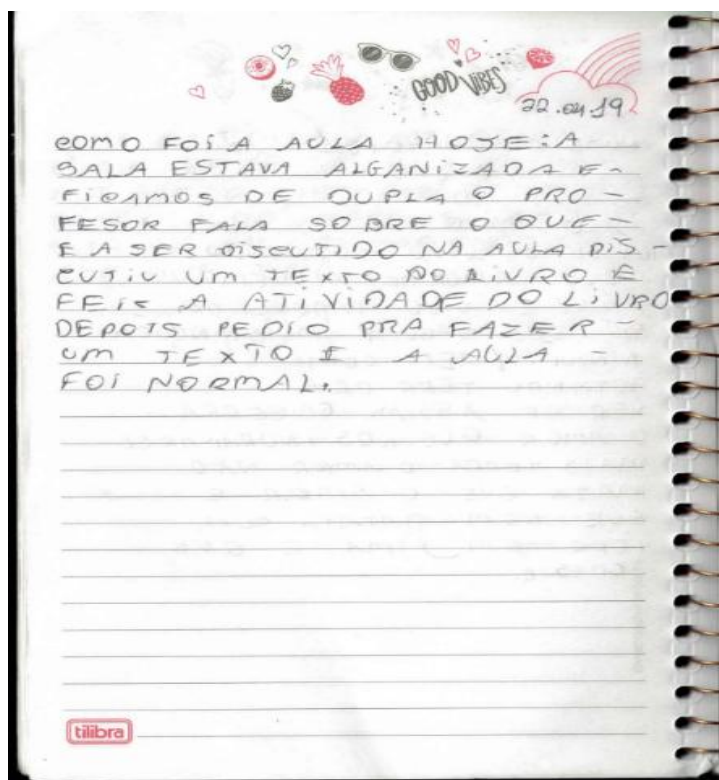 GOOD VIBES
22.04.19
COMO FOI A AULA HOJE: A
SALA ESTAVA ALGANIZADA E -
FICAMOS DE DUPLA O PRO -
FESOR FALA SOBRE O QUE -
E A SER DISCUTIDO NA AULA DIS -
CUTIU UM TEXTO DO LIVRO E
FEIS A ATIVIDADE DO LIVRO
DEPOIS PEDIO PRA FAZER -
UM TEXTO E A AULA -
FOI NORMAL.
tilibra